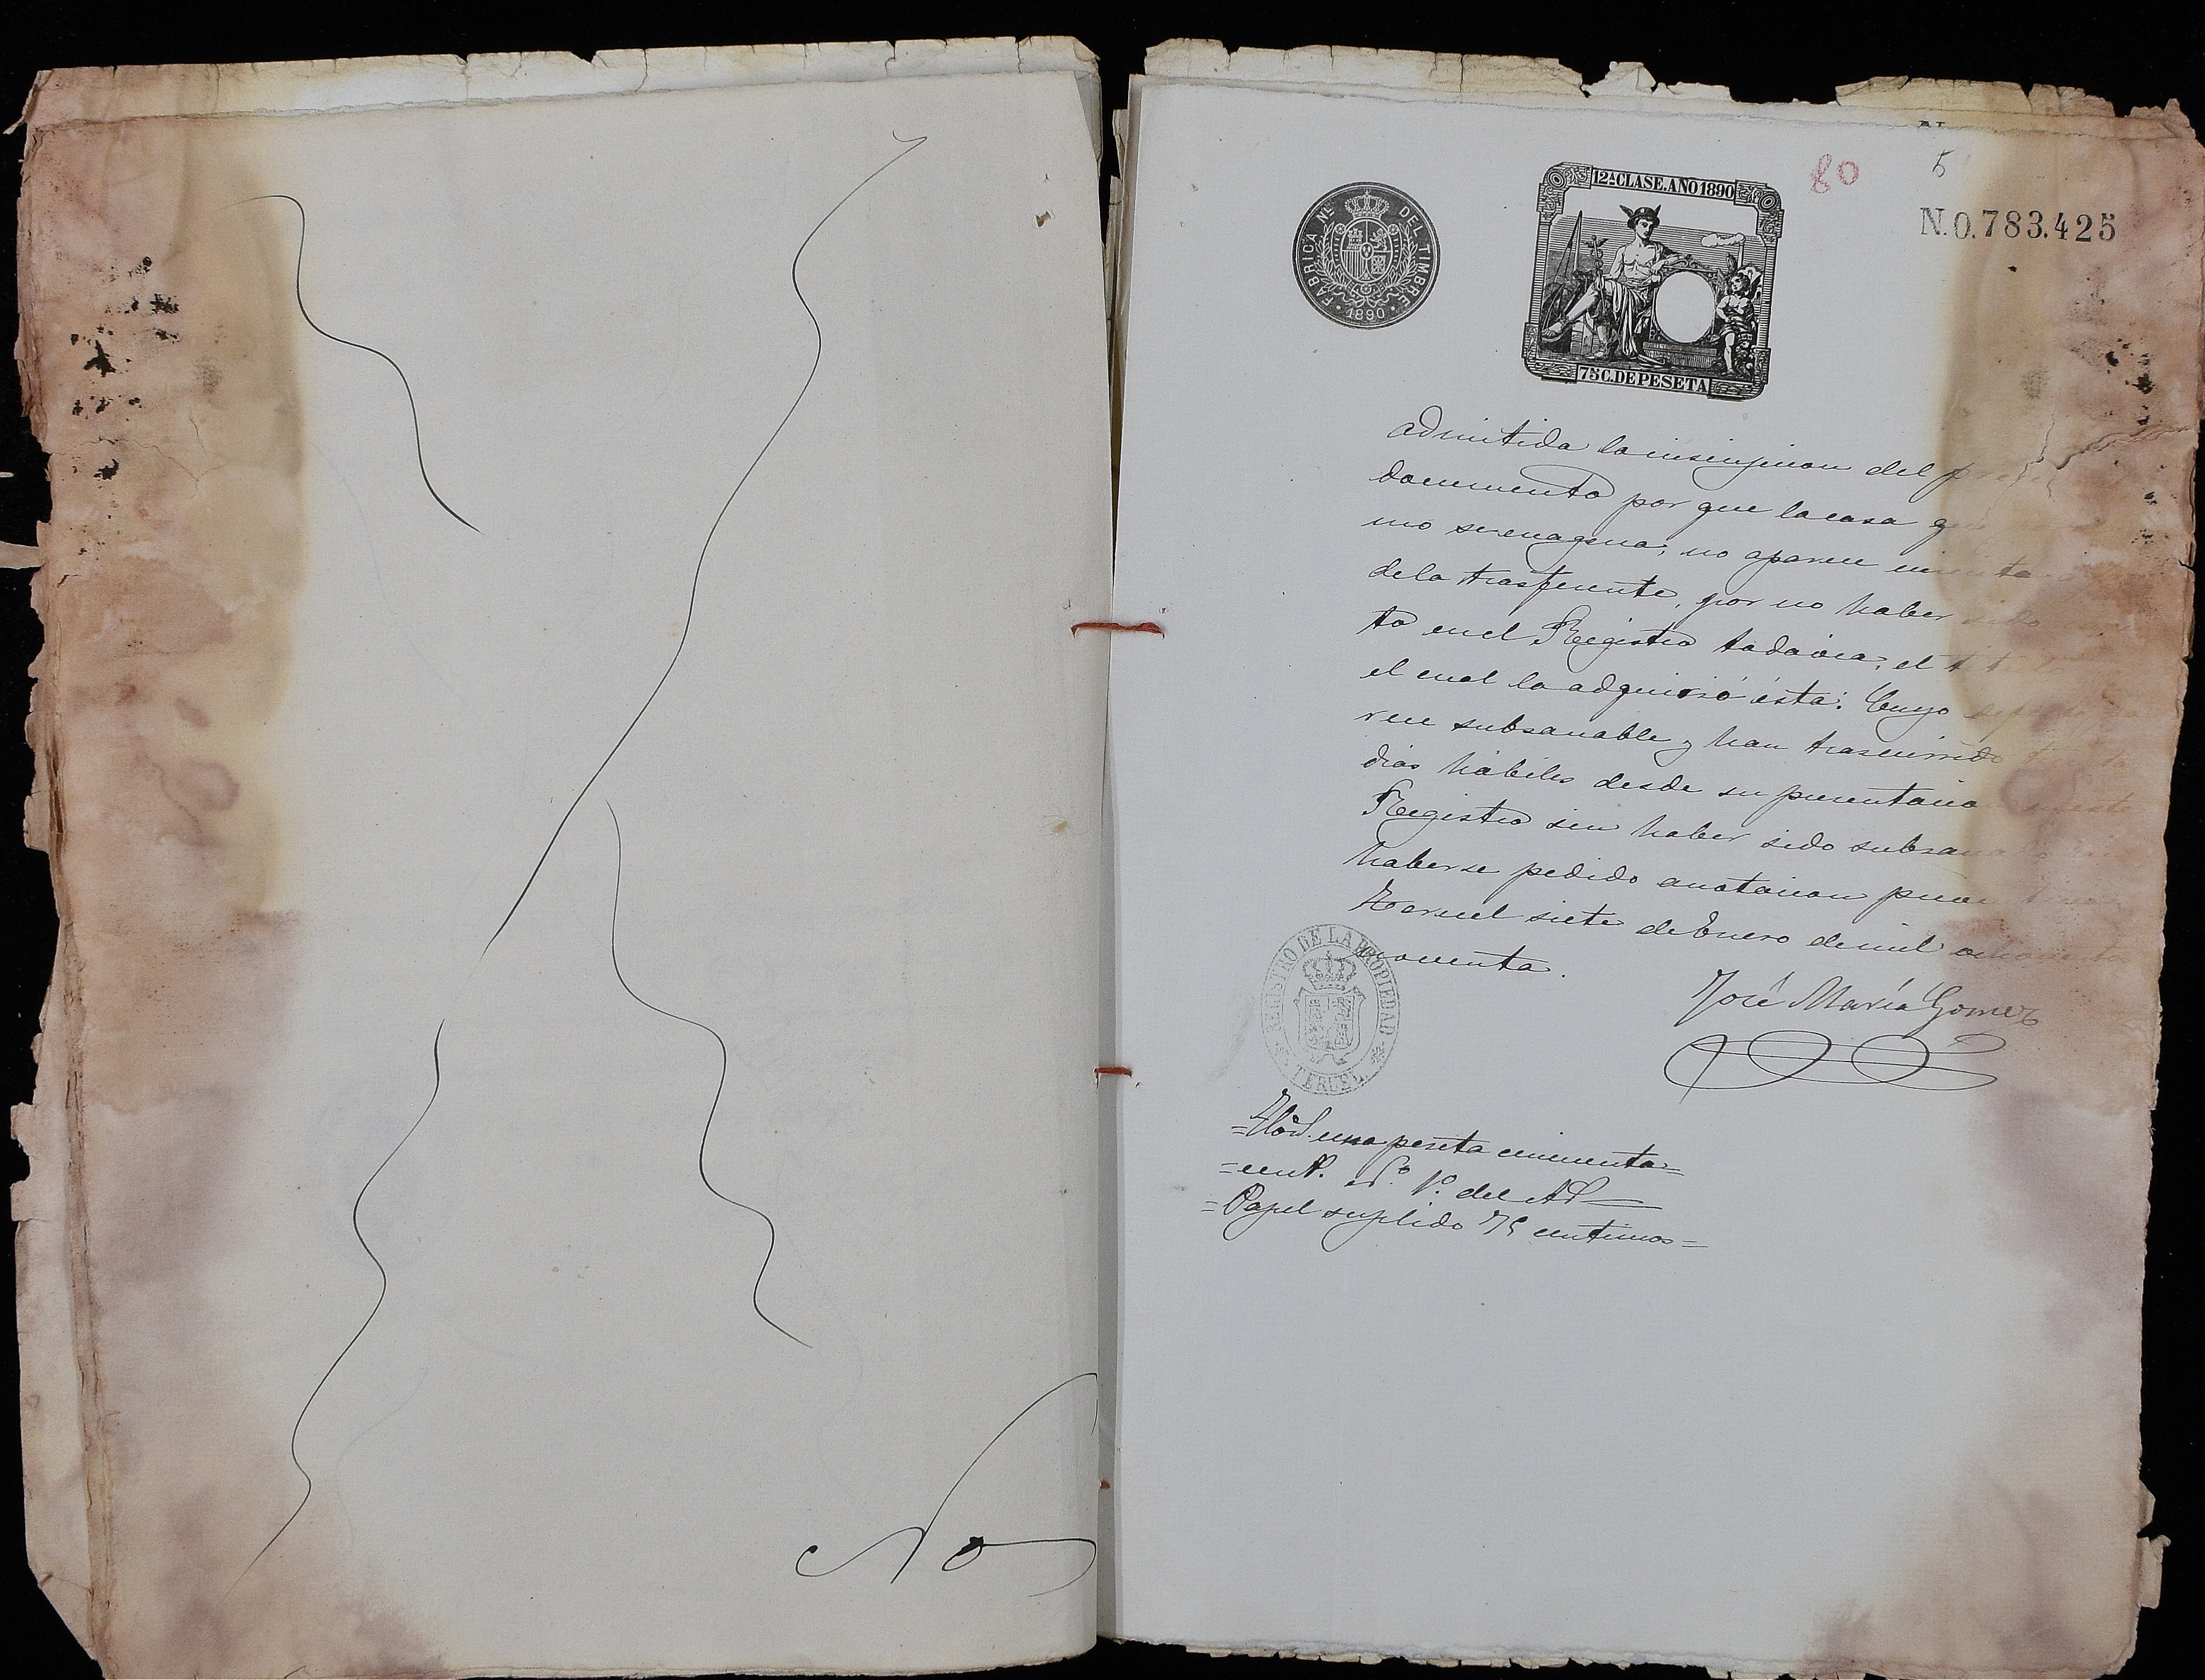 No
80
5
N.0.783.425
FABRICA NL. DEL TIMBRE
1890
12ª CLASE. AÑO 1890
75 C. DE PESETA
admitida la inscripcion del
documento por que la casa
mo se enagena, no aparece
de la trasferente, por no haber sido
to en el Registro todavia, el
el cual la adquirió esta: Cuyo
rece subsanable y han trascurrido
dias hábiles desde su presentacio
Registro sin haber sido
haberse pedido anotacion
Teruel siete de Enero de mil ochocientos
noventa.
José María Gomez
REGISTRO DE LA PROPIEDAD
TERUEL
una peseta cincuenta=
=cent. nº 1º del
=Papel suplido 75 centimos=